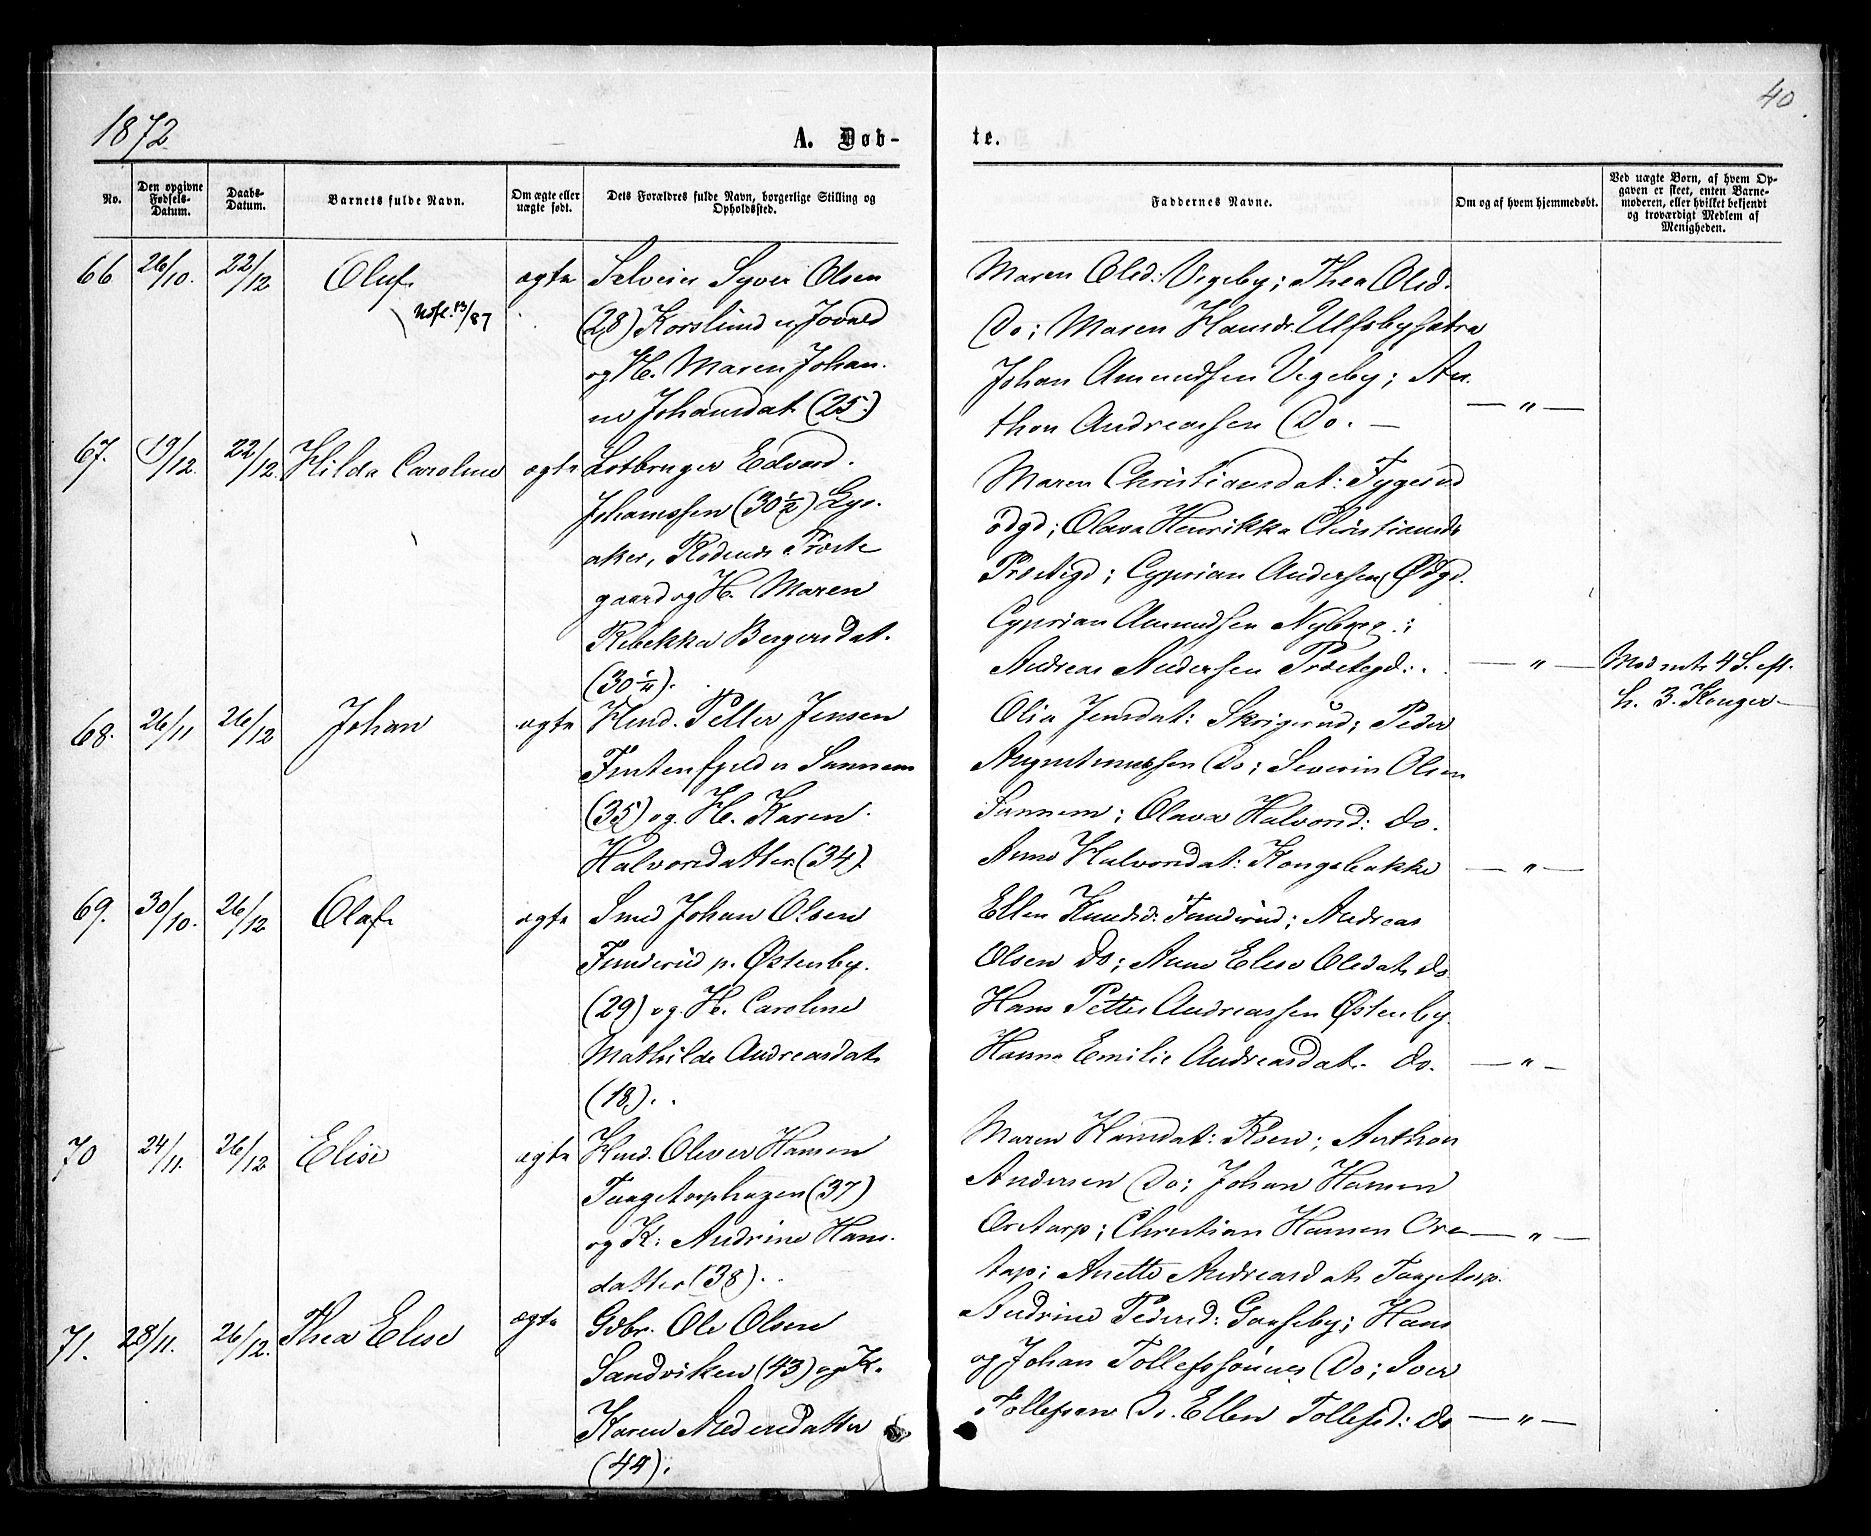 1872
A. Døb-
te.
40
No.
Den opgivne
Fødsels-
Datum.
Daabs-
Datum.
Barnets fulde Navn.
Om ægte eller
uægte født.
Dets Forældres fulde Navn, borgerlige Stilling og
Opholdssted.
Faddernes Navne.
Om og af hvem hjemmedøbt.
Ved uægte Børn, af hvem Op-
gaven er skeet, enten Barne-
moderen, eller hvilket bekjendt
og troværdigt Medlem af
Menigheden.
66 26/10. 22/12 Oluf. ægte Selveier Syver Olsen
Udfl. 13/87
(28) Korslund u. Jovald
og H. Maren Johan.
ne Johansdat. (25.)
Maren Olsd: Vegeby; Thea Olsd.
Do; Maren Hansdr. Ulfsbysætra
Johan Amundsen Vegeby; An.
thon Andreassen Do. — — „ —
67. 19/12. 22/12. Hilda Caroline ægte Lodbruger Edvard.
Johannssen (30 1/2) Lys.
aker, Rødenæs Præste
gaard og H. Maren
Rebekka Bergersdat.
(30 1/4).
Maren Christiansdat: Tygerud
ødgd; Olava Henrikka Christiansdr
Præstegd; Cyprian Andersen Ødgd.
Cyprian Amundsen Nyberg.;
Andreas Andersen Præstegd: . — „ —
68. 26/11 26/12 Johan ægte Husd. Petter Jensen
Fintenfjeld u Sannem
(35) og. H. Karen.
Halvorsdatter. (34).
Olia Jensdat: Skrigerud; Peder
Augustinussen Do; Severin Olsen
Sannem; Olava Halvorsd: do.
Anne Halvorsdat: Kongsbakke — „ —
69. 30/10. 26/12 Olaf. ægte Smed Johan Olsen
Funderud p. Østenby.
(29) og. H. Caroline
Mathilde Andreasdat.
(18). .
Ellen Knudsd: Funderud; Andreas
Olsen do; Anne Elise Olsdat. do
Hans Petter Andreassen Østenby
Hanna Emilie Andreasdat. do. — „ —
70 24/11. 26/12 Elise ægte Husd. Oliver Hansen
Taagetorphagen (37)
og K: Andrine Hans.
datter (38). .
Maren Hansdat: Roen; Anthon
Andersen Do; Johan Hansen
Oretorp; Christian Hansen Ore — „ —
torp; Anette Andreasdat. Taagetorp.
71. 28/11. 26/12. Thea Elise ægte Gdbr. Ole Olsen
Sandviken (43) og K.
Karen Pedersdatter
(44).
Andrine Pedersd: Gaaseby; Hans
og Johan Tollefssønner Do; Iver
Tollefsen Do. Ellen Tollefsd: do — „ —